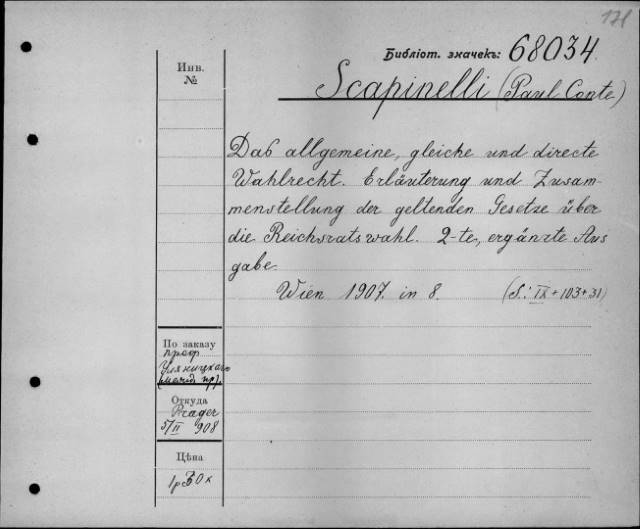 171
Библіот. значекъ: 68034
Инв.
№
Scapinelli (Paul Conte)
Das allgemeine, gleiche und directe
Wahlrecht. Erläuterung und Zusam-
menstellung der geltenden Gesetze über
die Reichsratswahl. 2-te, ergänzte Aus
gabe.
Wien 1907. in 8. (S.: IX + 103 + 31)
По заказу
проф
Уляницкаго
Откуда
Prager
5/II 908
Цѣна